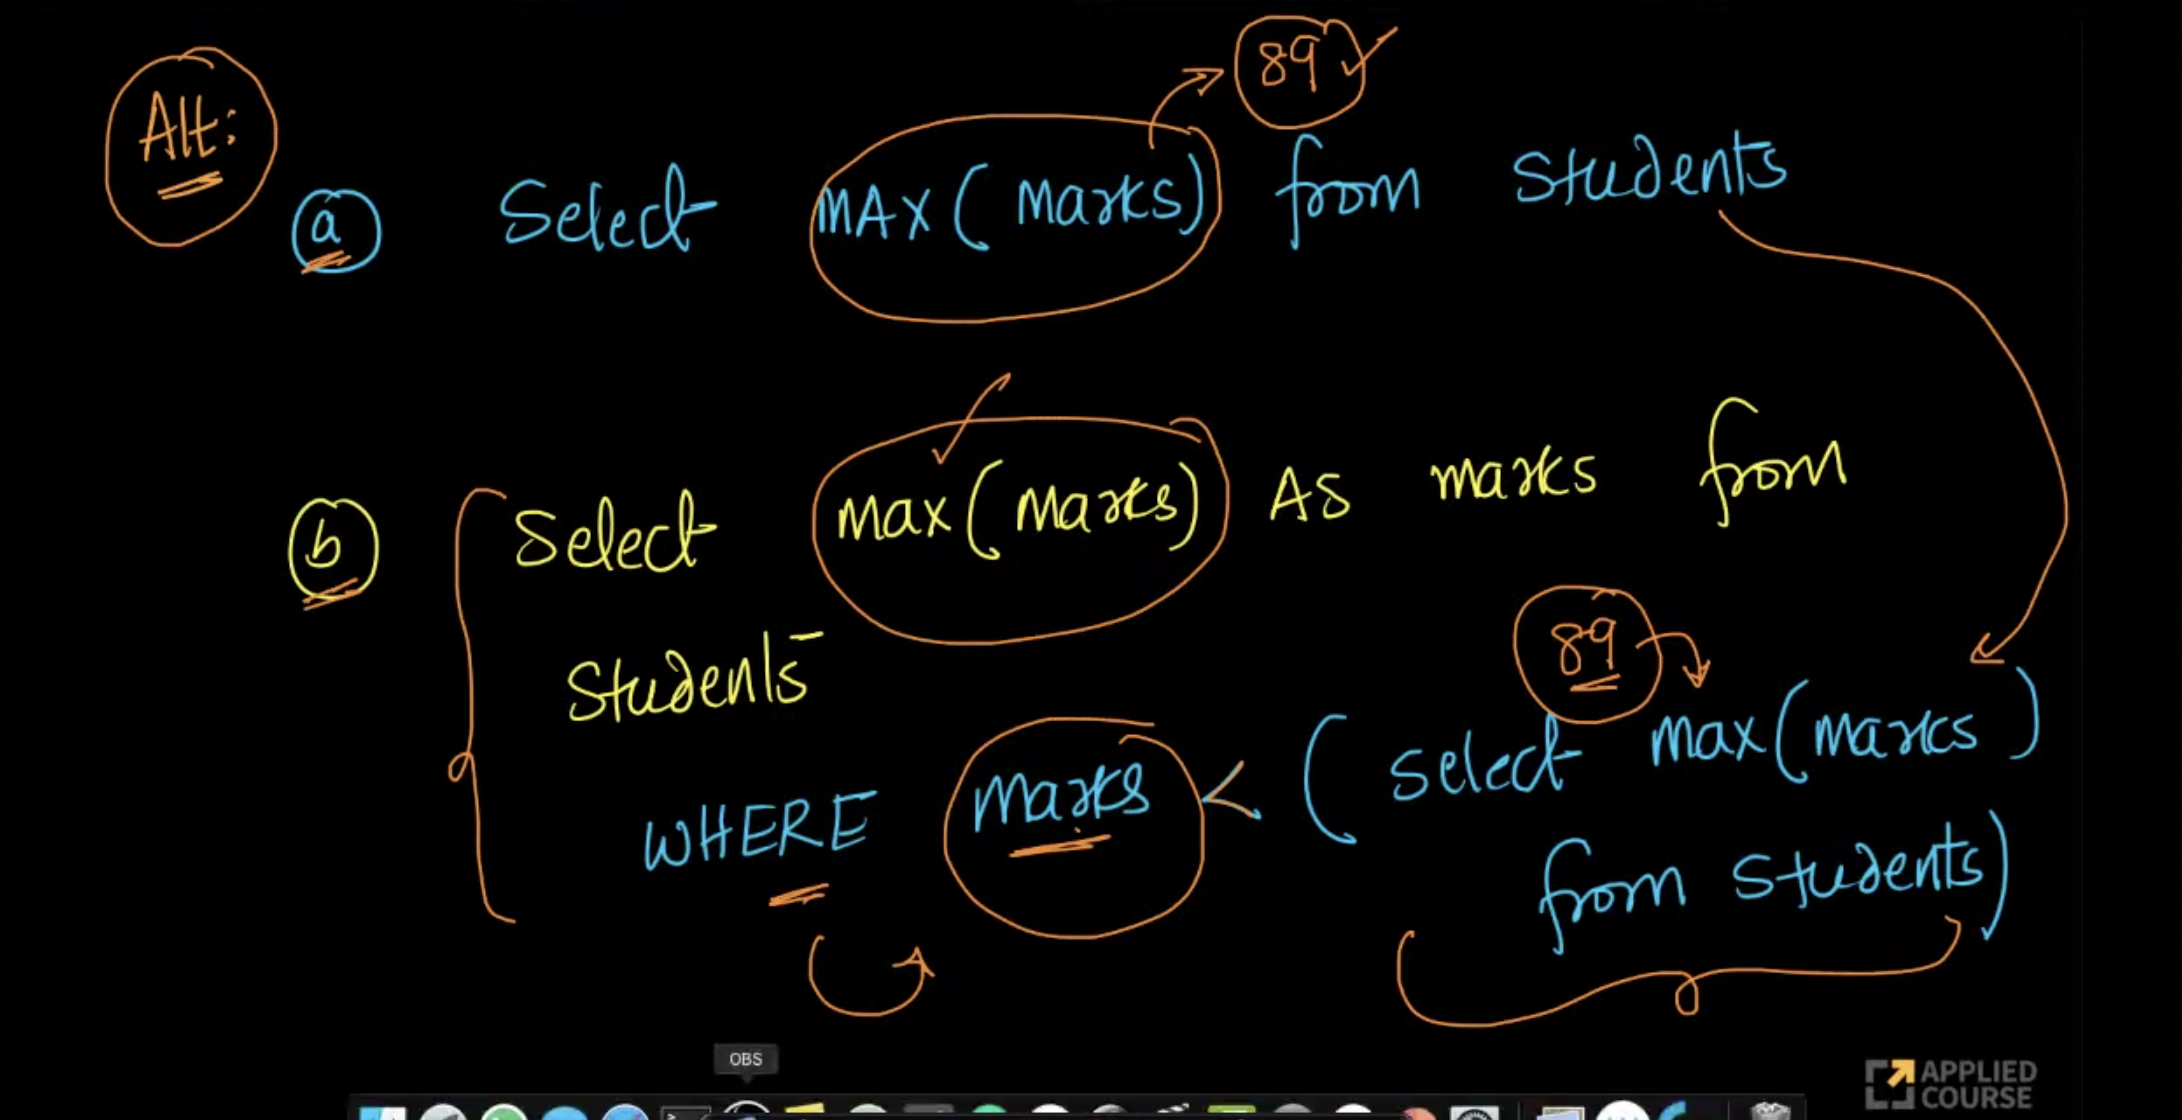 89
Alt:
a Select MAX(Marks) from students
b Select Max(Marks) As marks from
Students
89
WHERE Marks < (select Max(Marks)
from students)
OBS
APPLIED
COURSE